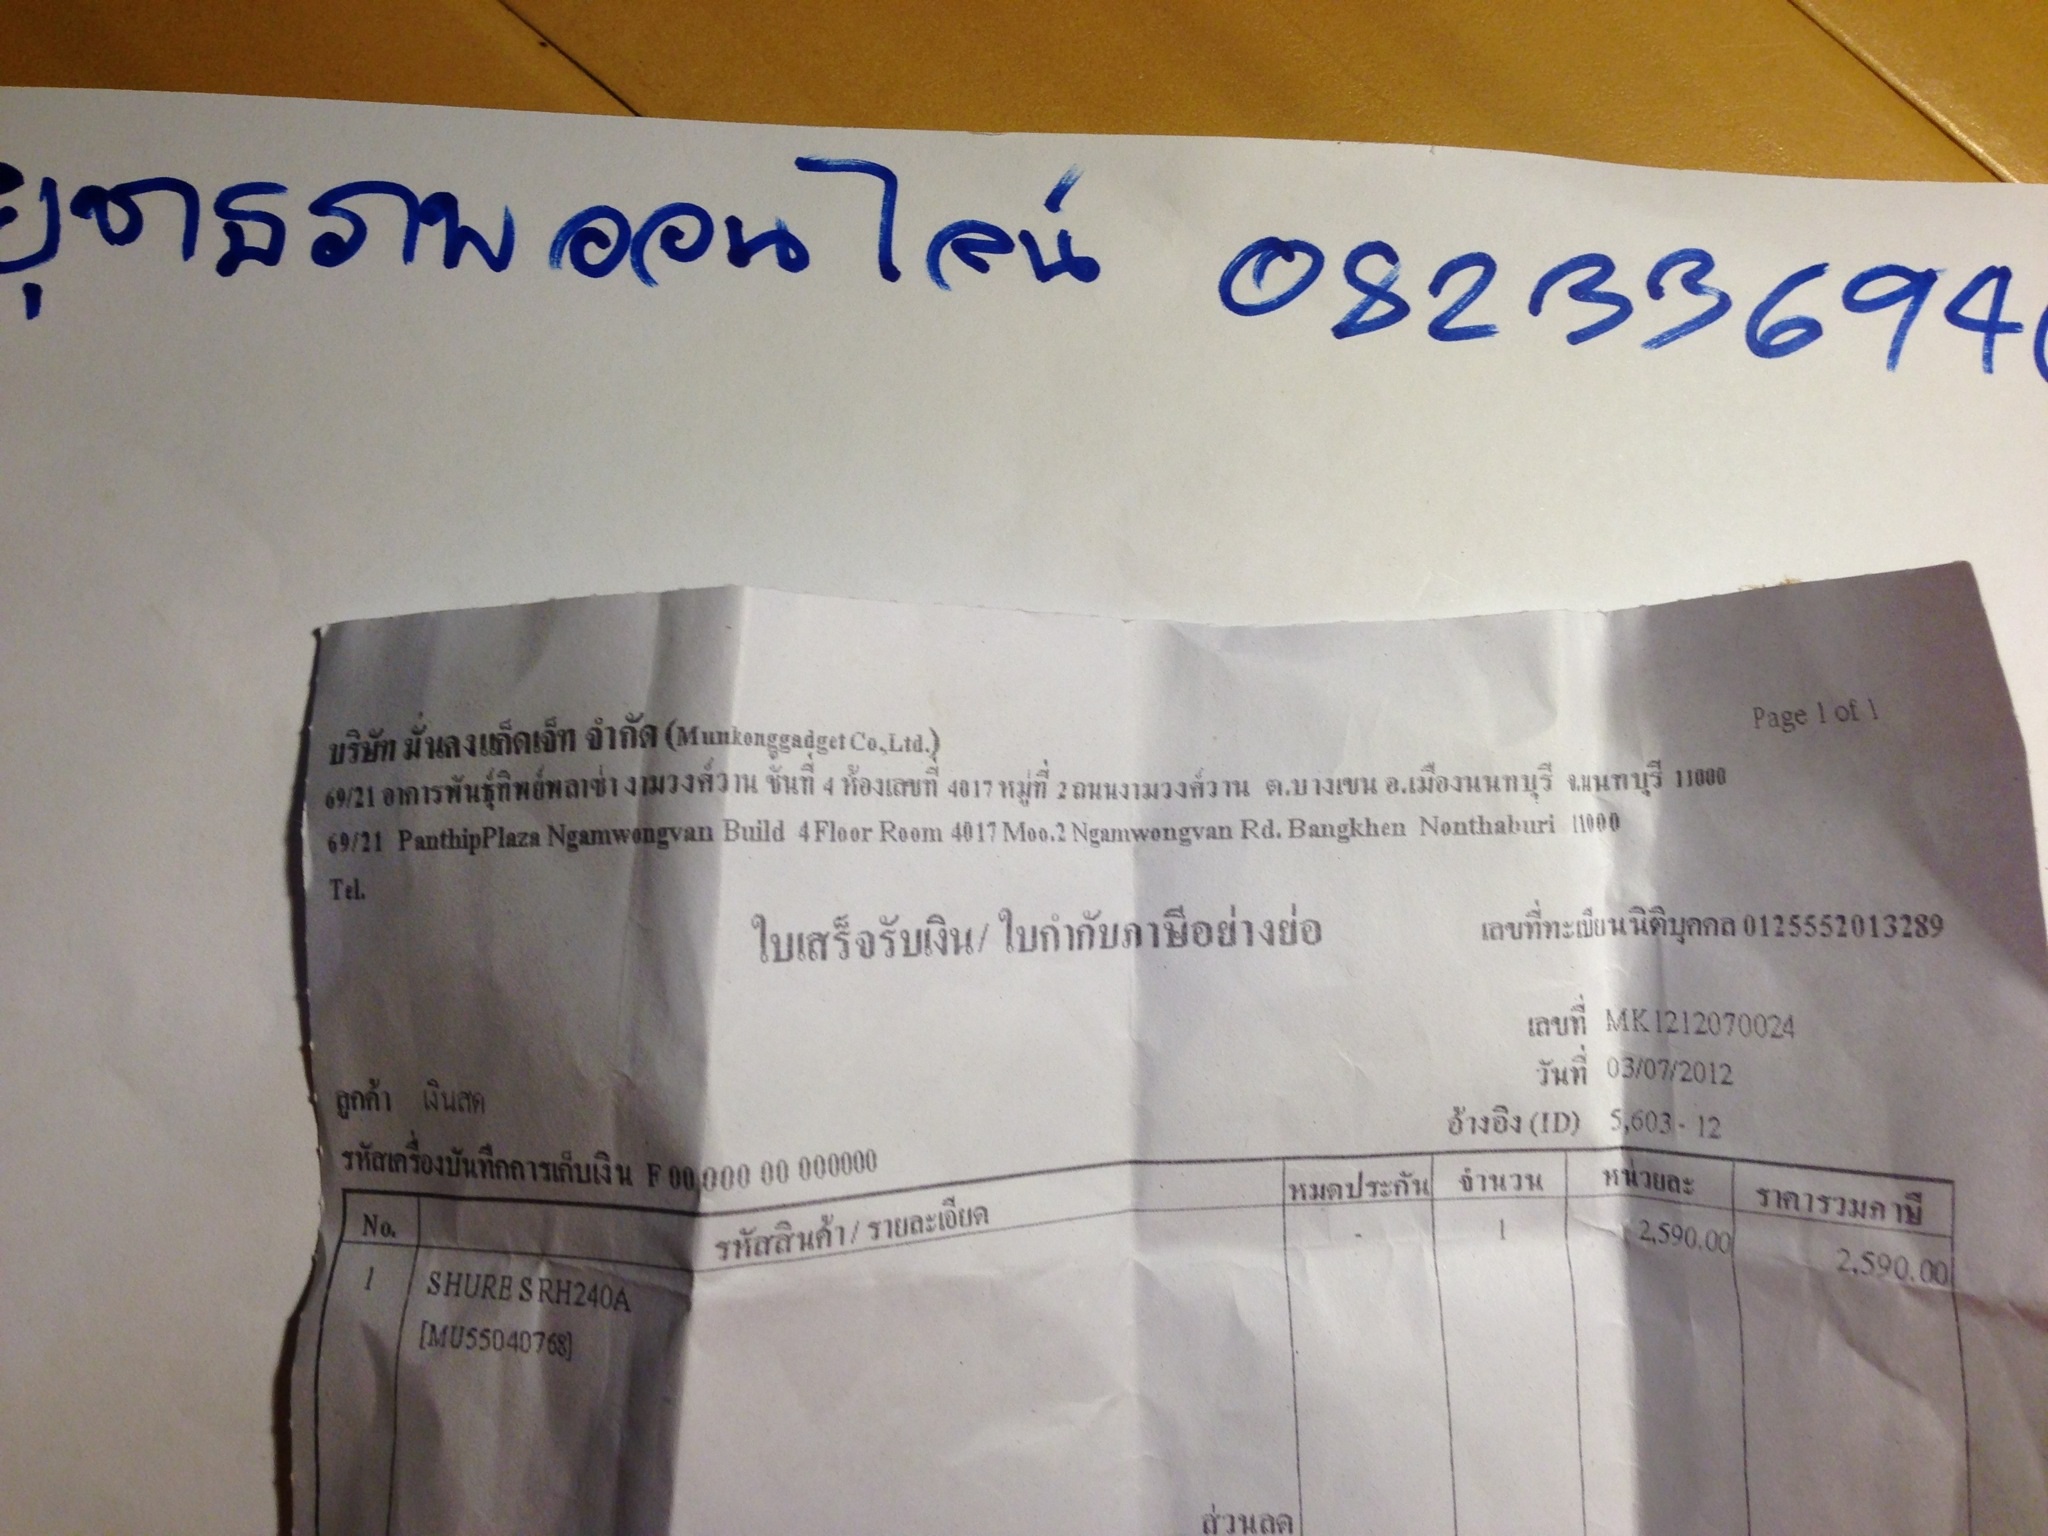 ยุชาธราพ ออนไลน์ 08233694
Page 1 of 1
บริษัท มั่นคงแก็ดเจ็ท จำกัด (Munkonggadget Co.,Ltd.)
69/21 อาคารพันธุ์ทิพย์พลาซ่า งามวงศ์วาน ชั้นที่ 4 ห้องเลขที่ 4017 หมู่ที่ 2 ถนนงามวงศ์วาน ต.บางเขน อ.เมืองนนทบุรี จ.นนทบุรี 11000
69/21 PanthipPlaza Ngamwongvan Build 4 Floor Room 4017 Moo.2 Ngamwongvan Rd. Bangkhen Nonthaburi 11000
Tel.
ใบเสร็จรับเงิน/ ใบกำกับภาษีอย่างย่อ เลขที่ทะเบียนนิติบุคคล 0125552013289
เลขที่ MK1212070024
วันที่ 03/07/2012
ลูกค้า เงินสด
อ้างอิง (ID) 5,603 - 12
รหัสเครื่องบันทึกการเก็บเงิน F 00 000 00 000000
No. รหัสสินค้า / รายละเอียด หมดประกัน จำนวน หน่วยละ ราคารวมภาษี
1 SHURE SRH240A - 1 2,590.00 2,590.00
[MU55040768]
ส่วนลด